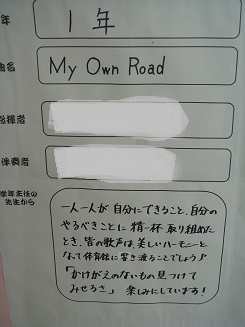 年 1年
曲名 My Own Road
指揮者
伴奏者
学年主任の
先生から
一人一人が自分にできること、自分の
やるべきことに精一杯取り組めた
とき、皆の歌声は、美しいハーモニーと
なって体育館に響き渡ることでしょう♪
「かけがえのないもの見つけて
みせるさ」 楽しみにしています!